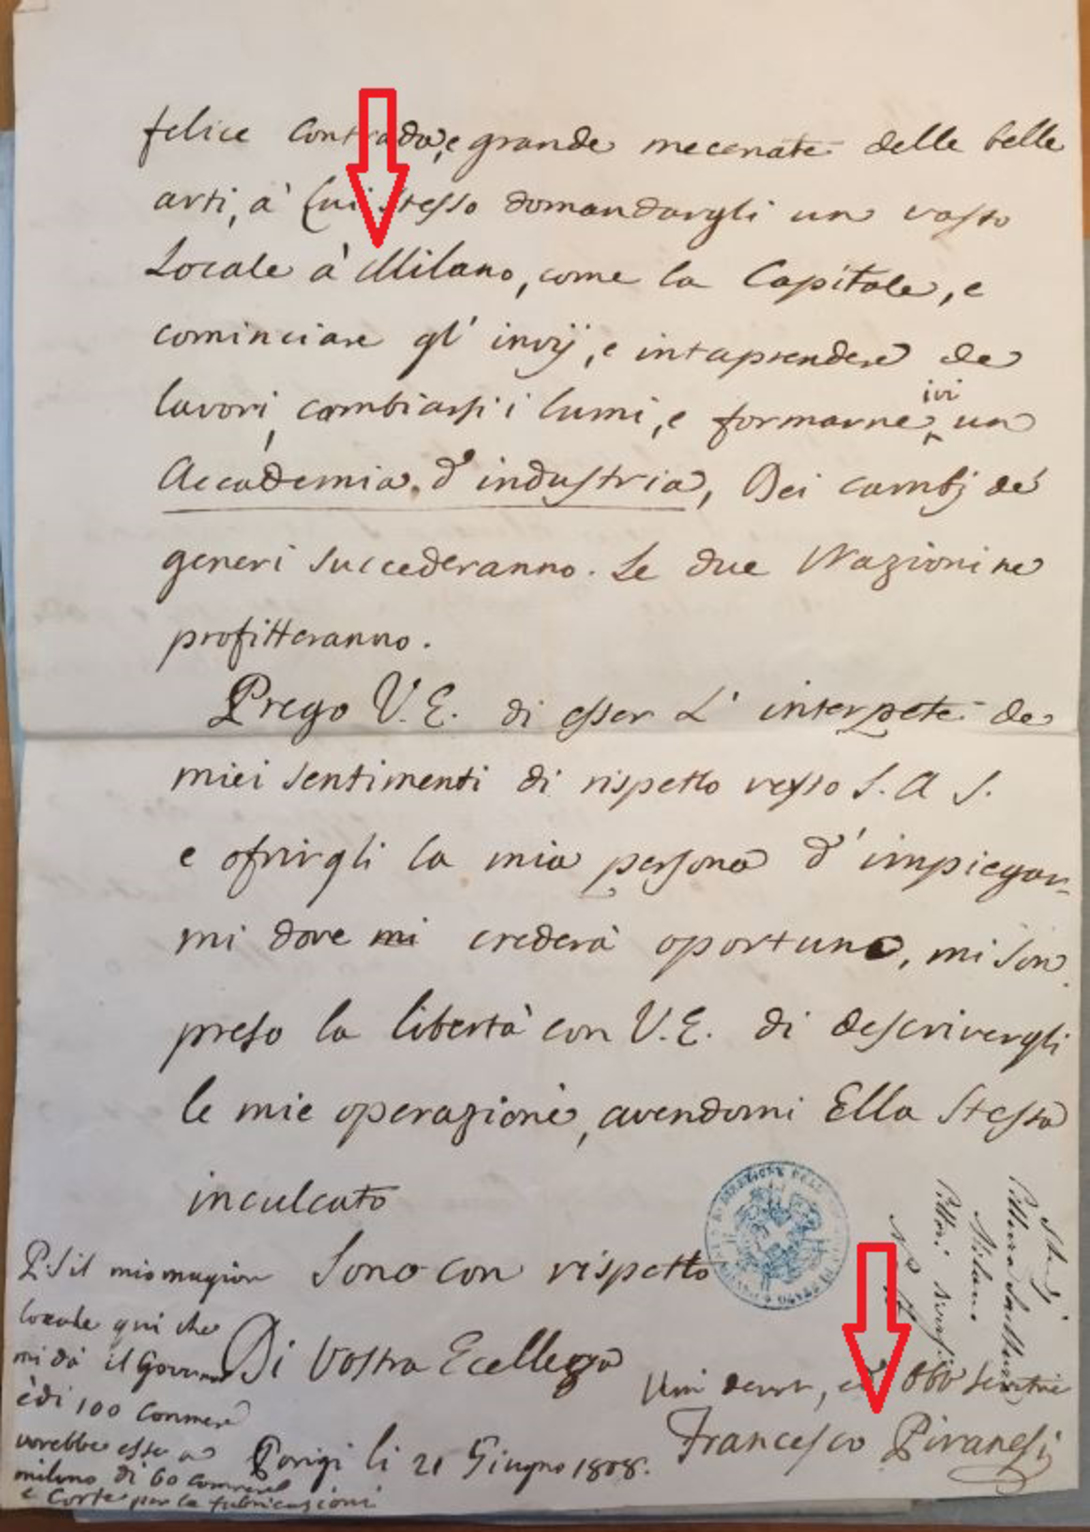 felice Contrada, e grande mecenate delle belle
arti, à Lui stesso domandargli un vasto
Locale à Milano, come la Capitale, e
cominciare gl' invij, e intaprendere de
lavori, cambiarsi i lumi, e formarne ivi un
Accademia d'industria, Dei cambj de'
generi succederanno. Le due Nazioni ne
profitteranno.
Prego V.E. di esser L' interpete de
miei sentimenti di rispetto verso S. A S.
e ofrirgli la mia persona d'impiegar-
mi dove mi crederà oportuno, mi son
preso la libertà con V.E. di descrivergli
le mie operazioni, avendomi Ella Stessa
inculcato
Sono con rispetto
Di Vostra Ecellenza
Francesco Piranesi
Parigi li 21 Giugno 1808.
P.S il mio magior
locale qui che
mi dà il Governo
è di 100 Conmere
vorebbe esse a
milano di 60
e Corte per la fabricazioni
Studj
Pittura
Milano
Pittori